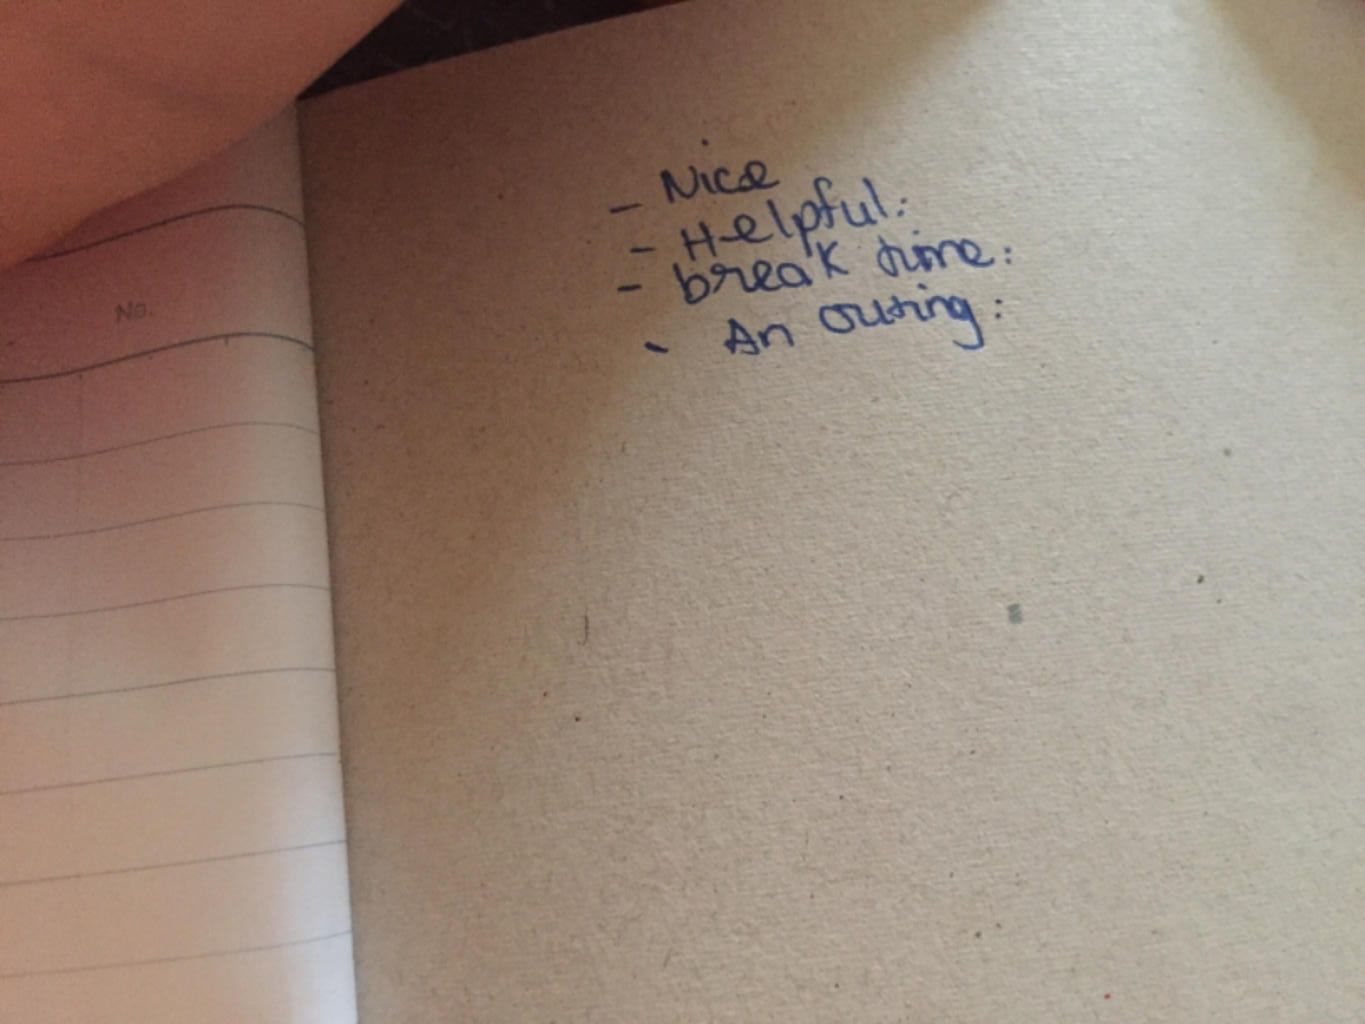 No.
- Nice
- Helpful:
- break time:
- An outing: